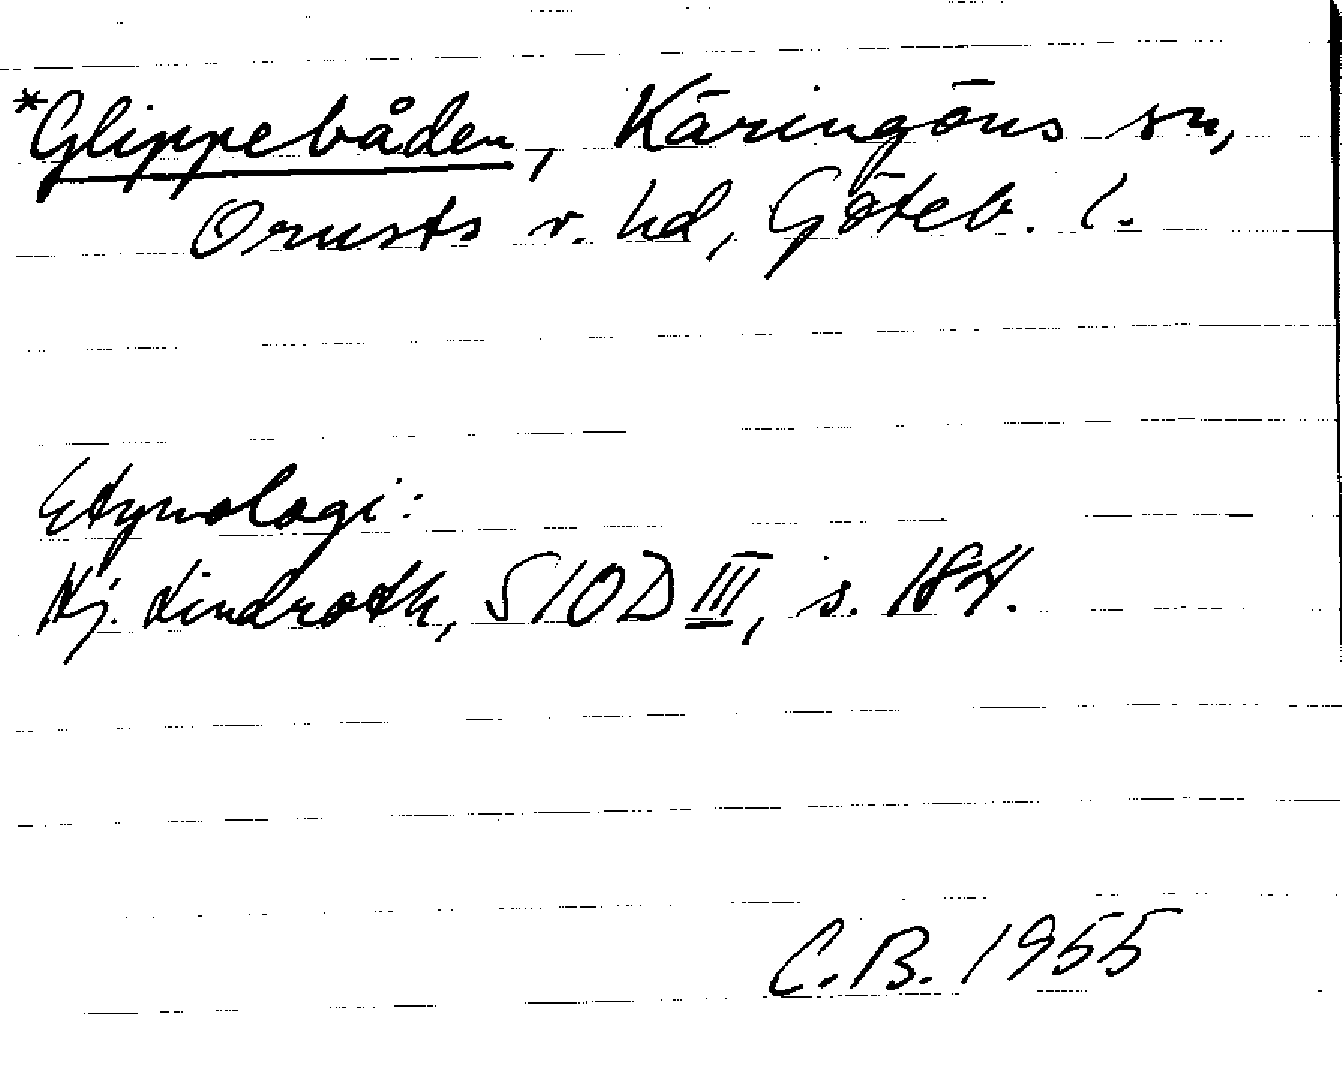 *Glippebåden, Käringöns sn,
Orusts v. hd, Göteb. l.
Etymologi:
Hj. Lindroth, SIOD III, s. 184.
C.B. 1955